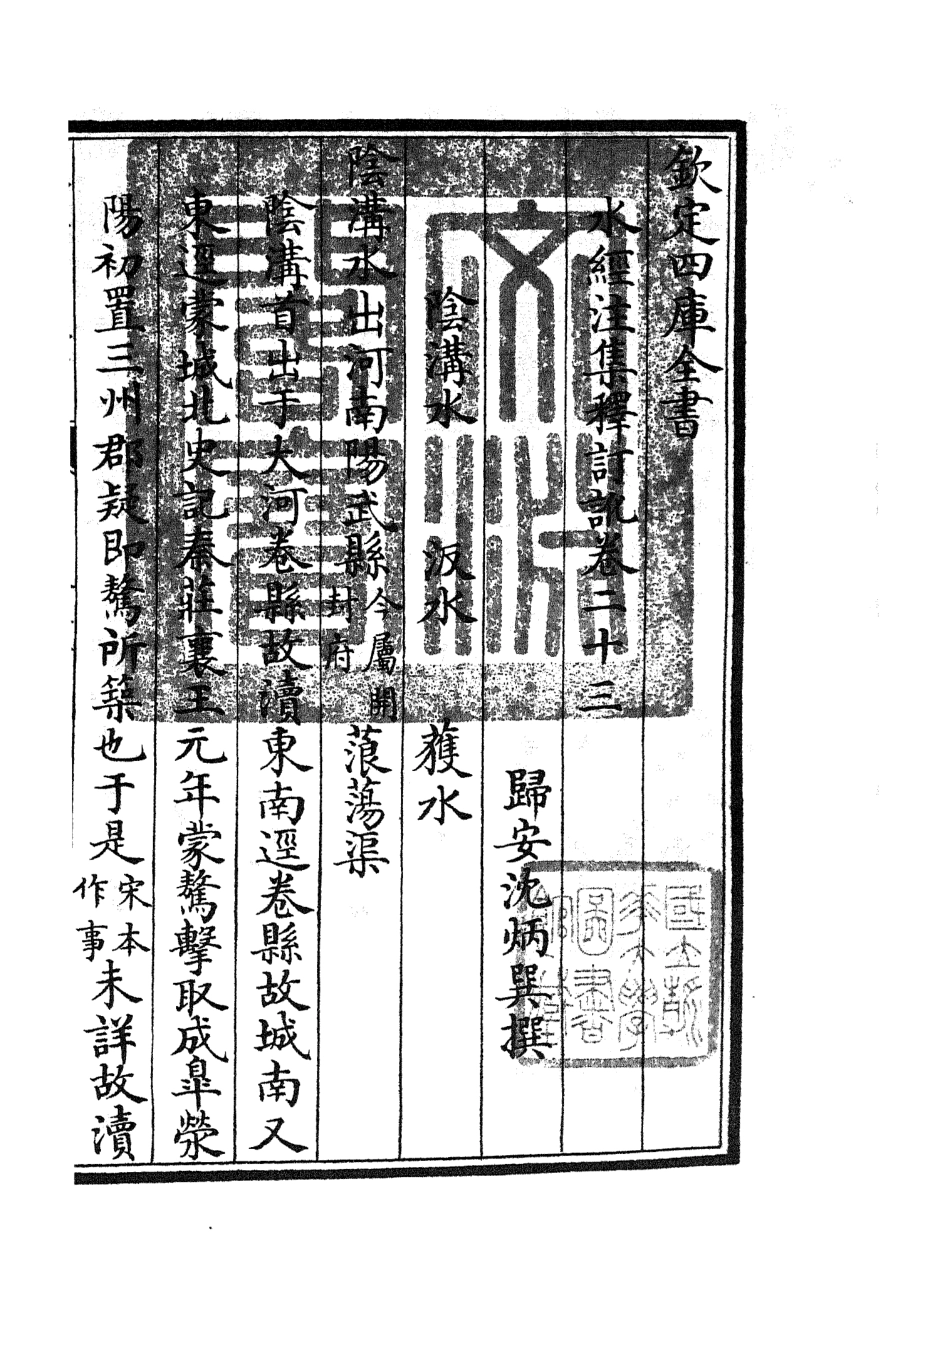 欽定四庫全書
水經注集釋訂訛卷二十三
歸安沈炳巽撰
陰溝水 汳水 獲水
陰溝水出河南陽武縣今屬開封府蒗蕩渠
陰溝首出于大河卷縣故瀆東南逕卷縣故城南又
東逕蒙城北史記秦莊襄王元年蒙驁擊取成臯滎
陽初置三州郡疑即驁所築也于是宋本作事未詳故瀆